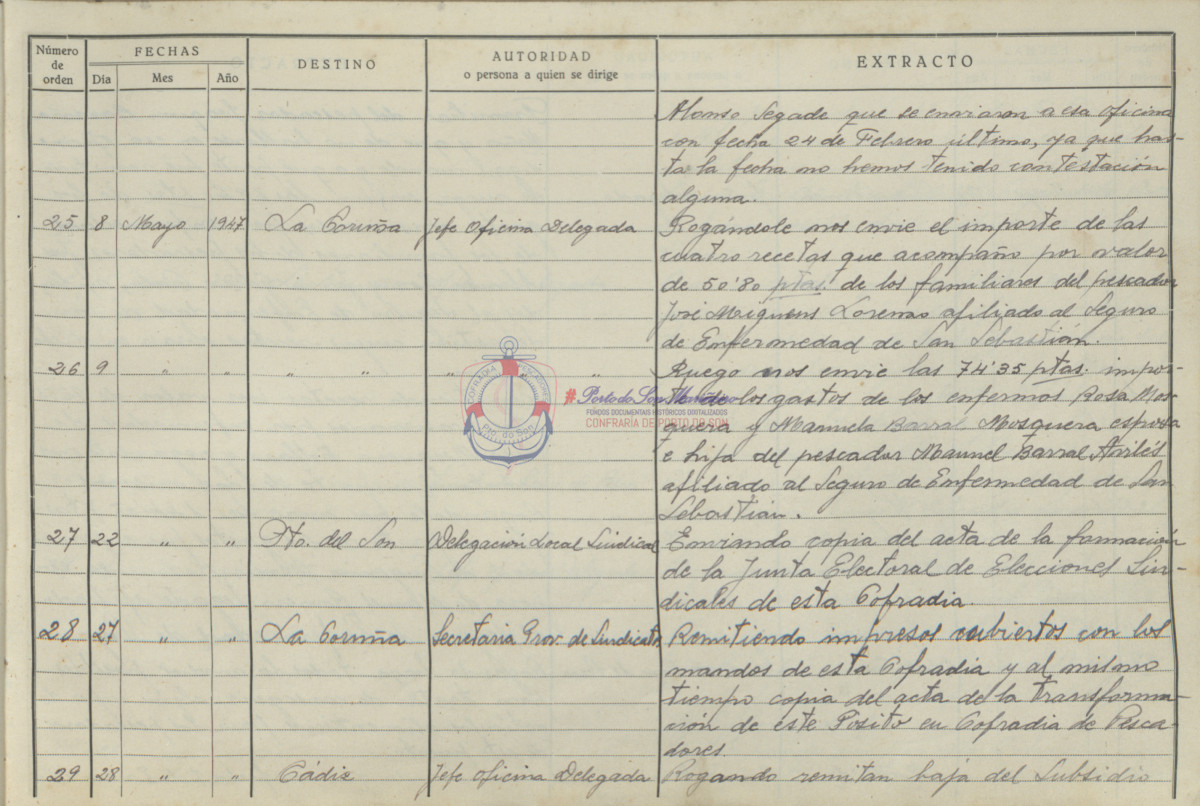 Número de orden
FECHAS
Día
Mes
Año
DESTINO
AUTORIDAD
o persona a quien se dirige
EXTRACTO
Alonso Segade que se enviaron a esa oficina
con fecha 24 de Febrero último, ya que has-
ta la fecha no hemos tenido contestación
alguna.
25 8 Mayo 1947 La Coruña Jefe Oficina Delegada Rogándole nos envie el importe de las
cuatro recetas que acompaño por valor
de 50'80 ptas. de los familiares del pescador
José Maiguens Lorenzo afiliado al Seguro
de Enfermedad de San Sebastián.
26 9 " " " " " " " Ruego nos envie las 74'35 ptas. impor-
te de los gastos de los enfermos Rosa Mos-
quera y Manuela Barral Mosquera esposa
e hija del pescador Manuel Barral
afiliado al Seguro de Enfermedad de San
Sebastián.
27 22 " " Pto. del Son Delegación Local Sindical Enviando copia del acta de la formación
de la Junta Electoral de Elecciones Sin-
dicales de esta Cofradia.
28 27 " " La Coruña Secretaria Prov. de Sindicatos Remitiendo impresos cubiertos con los
mandos de esta Cofradia y al mismo
tiempo copia del acta de la transforma-
ción de este Posito en Cofradia de Pesca-
dores.
29 28 " " Cádiz Jefe Oficina Delegada Rogando remitan baja del Subsidio
COFRADIA PESCADORES
Pto. do Son
#PortodoSonMariñeiro
FONDOS DOCUMENTAIS HISTÓRICOS DIGITALIZADOS
CONFRARÍA DE PORTO DO SON